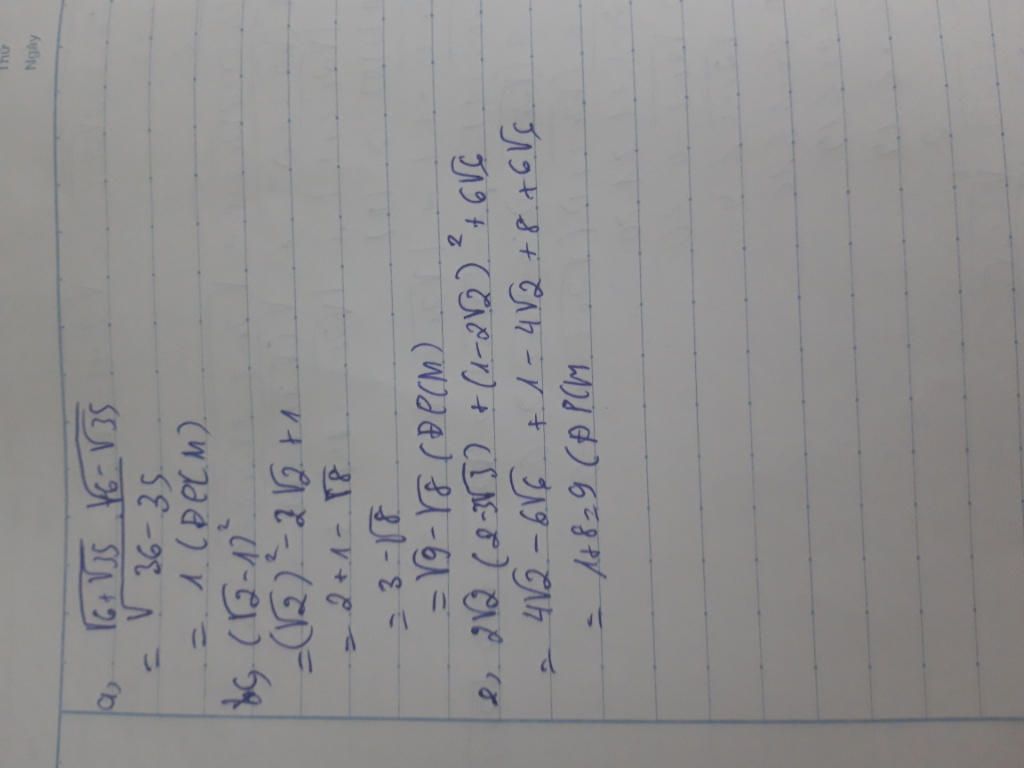 Thứ
Ngày
a, √6+√35 √6-√35
= √36-35
= 1 (ĐPCM)
b, (√2-1)²
=(√2)²-2√2+1
= 2+1-√8
= 3-√8
= √9-√8 (ĐPCM)
e, 2√2 (2-3√3) + (1-2√2)² + 6√6
= 4√2-6√6 + 1-4√2+8+6√6
= 1+8=9 (ĐPCM